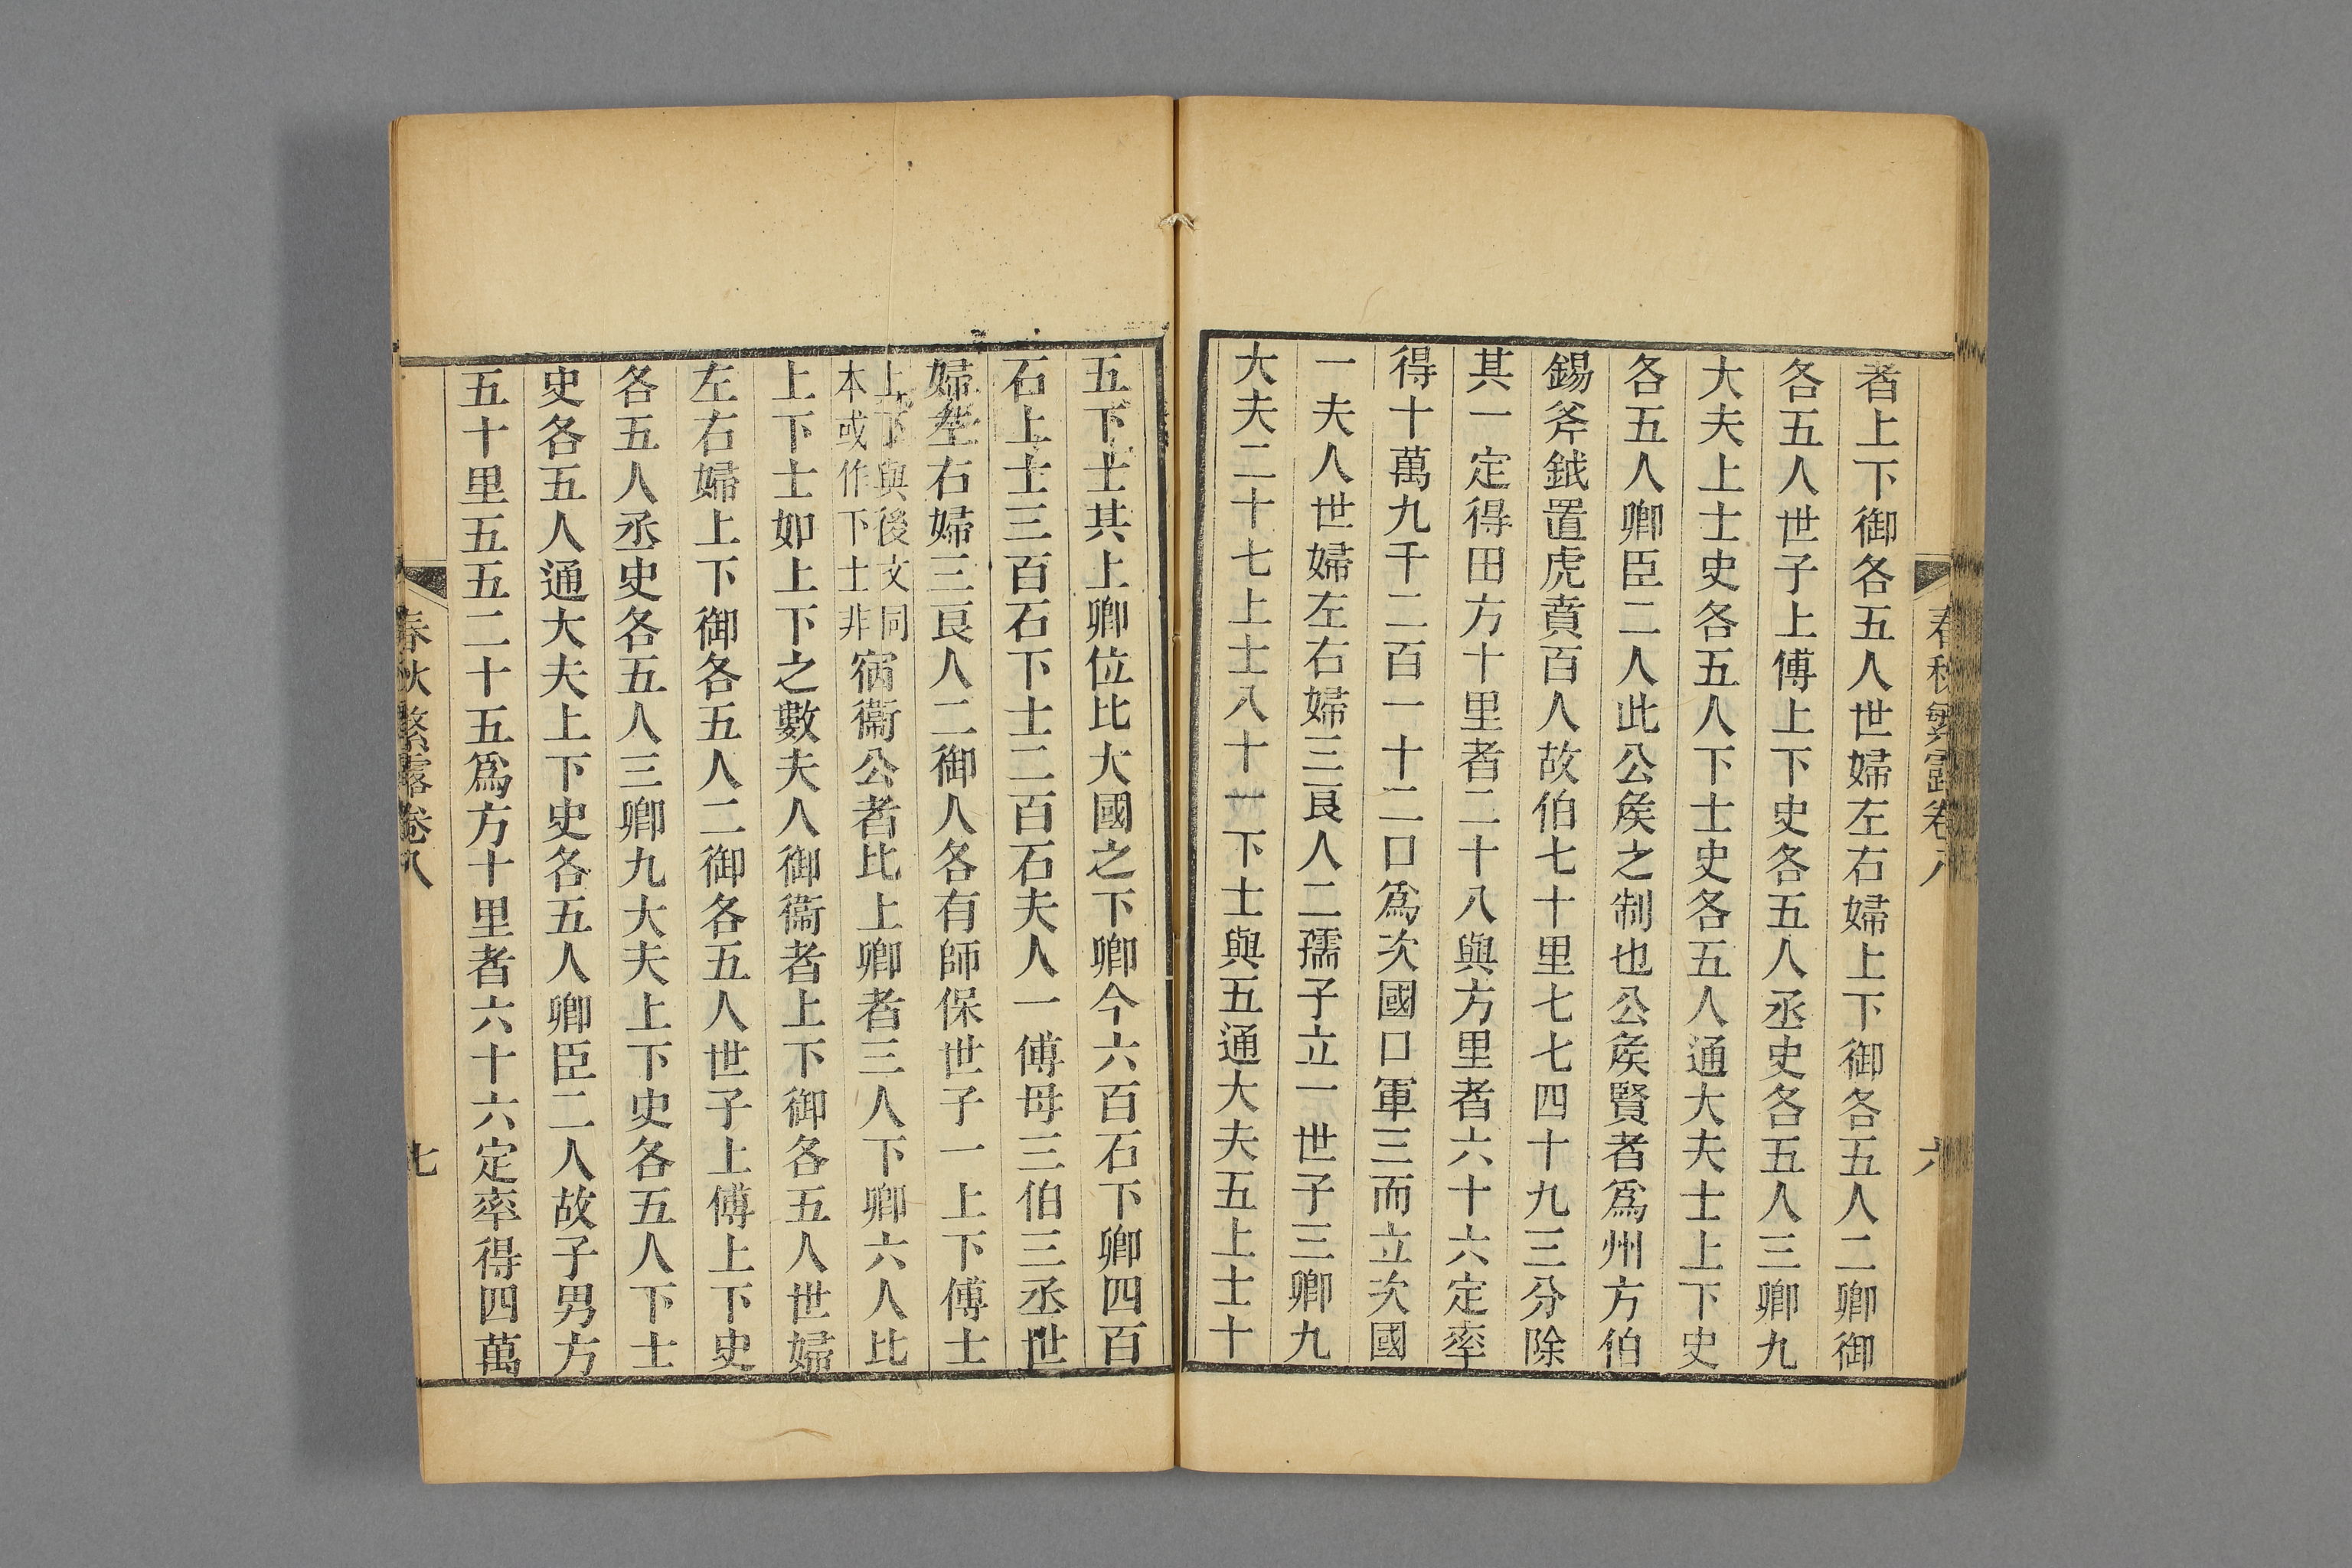 者上下御各五人世婦左右婦上下御各五人二卿御
各五人世子上傅上下史各五人丞史各五人三卿九
大夫上士史各五人下士史各五人通大夫士上下史
各五人卿臣二人此公矦之制也公矦賢者爲州方伯
錫斧鉞置虎賁百人故伯七十里七七四十九三分除
其一定得田方十里者二十八與方里者六十六定率
得十萬九千二百一十二口爲次國口軍三而立次國
一夫人世婦左右婦三良人二孺子立一世子三卿九
大夫二十七上士八十一下士與五通大夫五上士十
五下士其上卿位比大國之下卿今六百石下卿四百
石上士三百石下士二百石夫人一傅母三伯三丞世
婦左右婦三良人二御人各有師保世子一上下傅士
上下與後文同
本或作下士非
宿衞公者比上卿者三人下卿六人比
上下士如上下之數夫人御衞者上下御各五人世婦
左右婦上下御各五人二御各五人世子上傅上下史
各五人丞史各五人三卿九大夫上下史各五人下士
史各五人通大夫上下史各五人卿臣二人故子男方
五十里五五二十五爲方十里者六十六定率得四萬
春秋繁露卷八
七